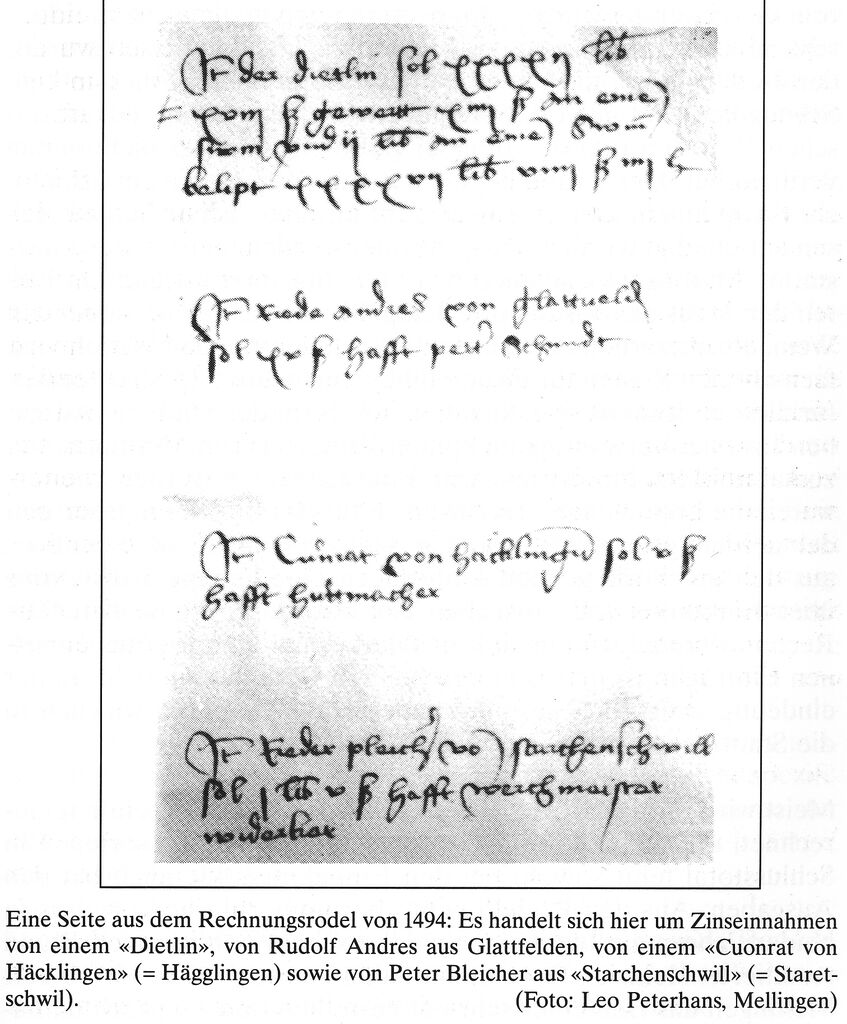 It der dietlin sol xxxxvii lib
xviii ß gewert xiii ß an eine
und ii lib an eine
belipt xxxxvii lib viiii ß iiii
It andres von glattveld
sol xv ß hafft schmidt
It Cunrat von hacklingen sol v ß
hafft huttmacher
It pleich von starchenschwill
sol i lib v ß hafft werchmeister
widerker
Eine Seite aus dem Rechnungsrodel von 1494: Es handelt sich hier um Zinseinnahmen
von einem «Dietlin», von Rudolf Andres aus Glattfelden, von einem «Cuonrat von
Häcklingen» (= Hägglingen) sowie von Peter Bleicher aus «Starchenschwill» (= Staret-
schwil). (Foto: Leo Peterhans, Mellingen)